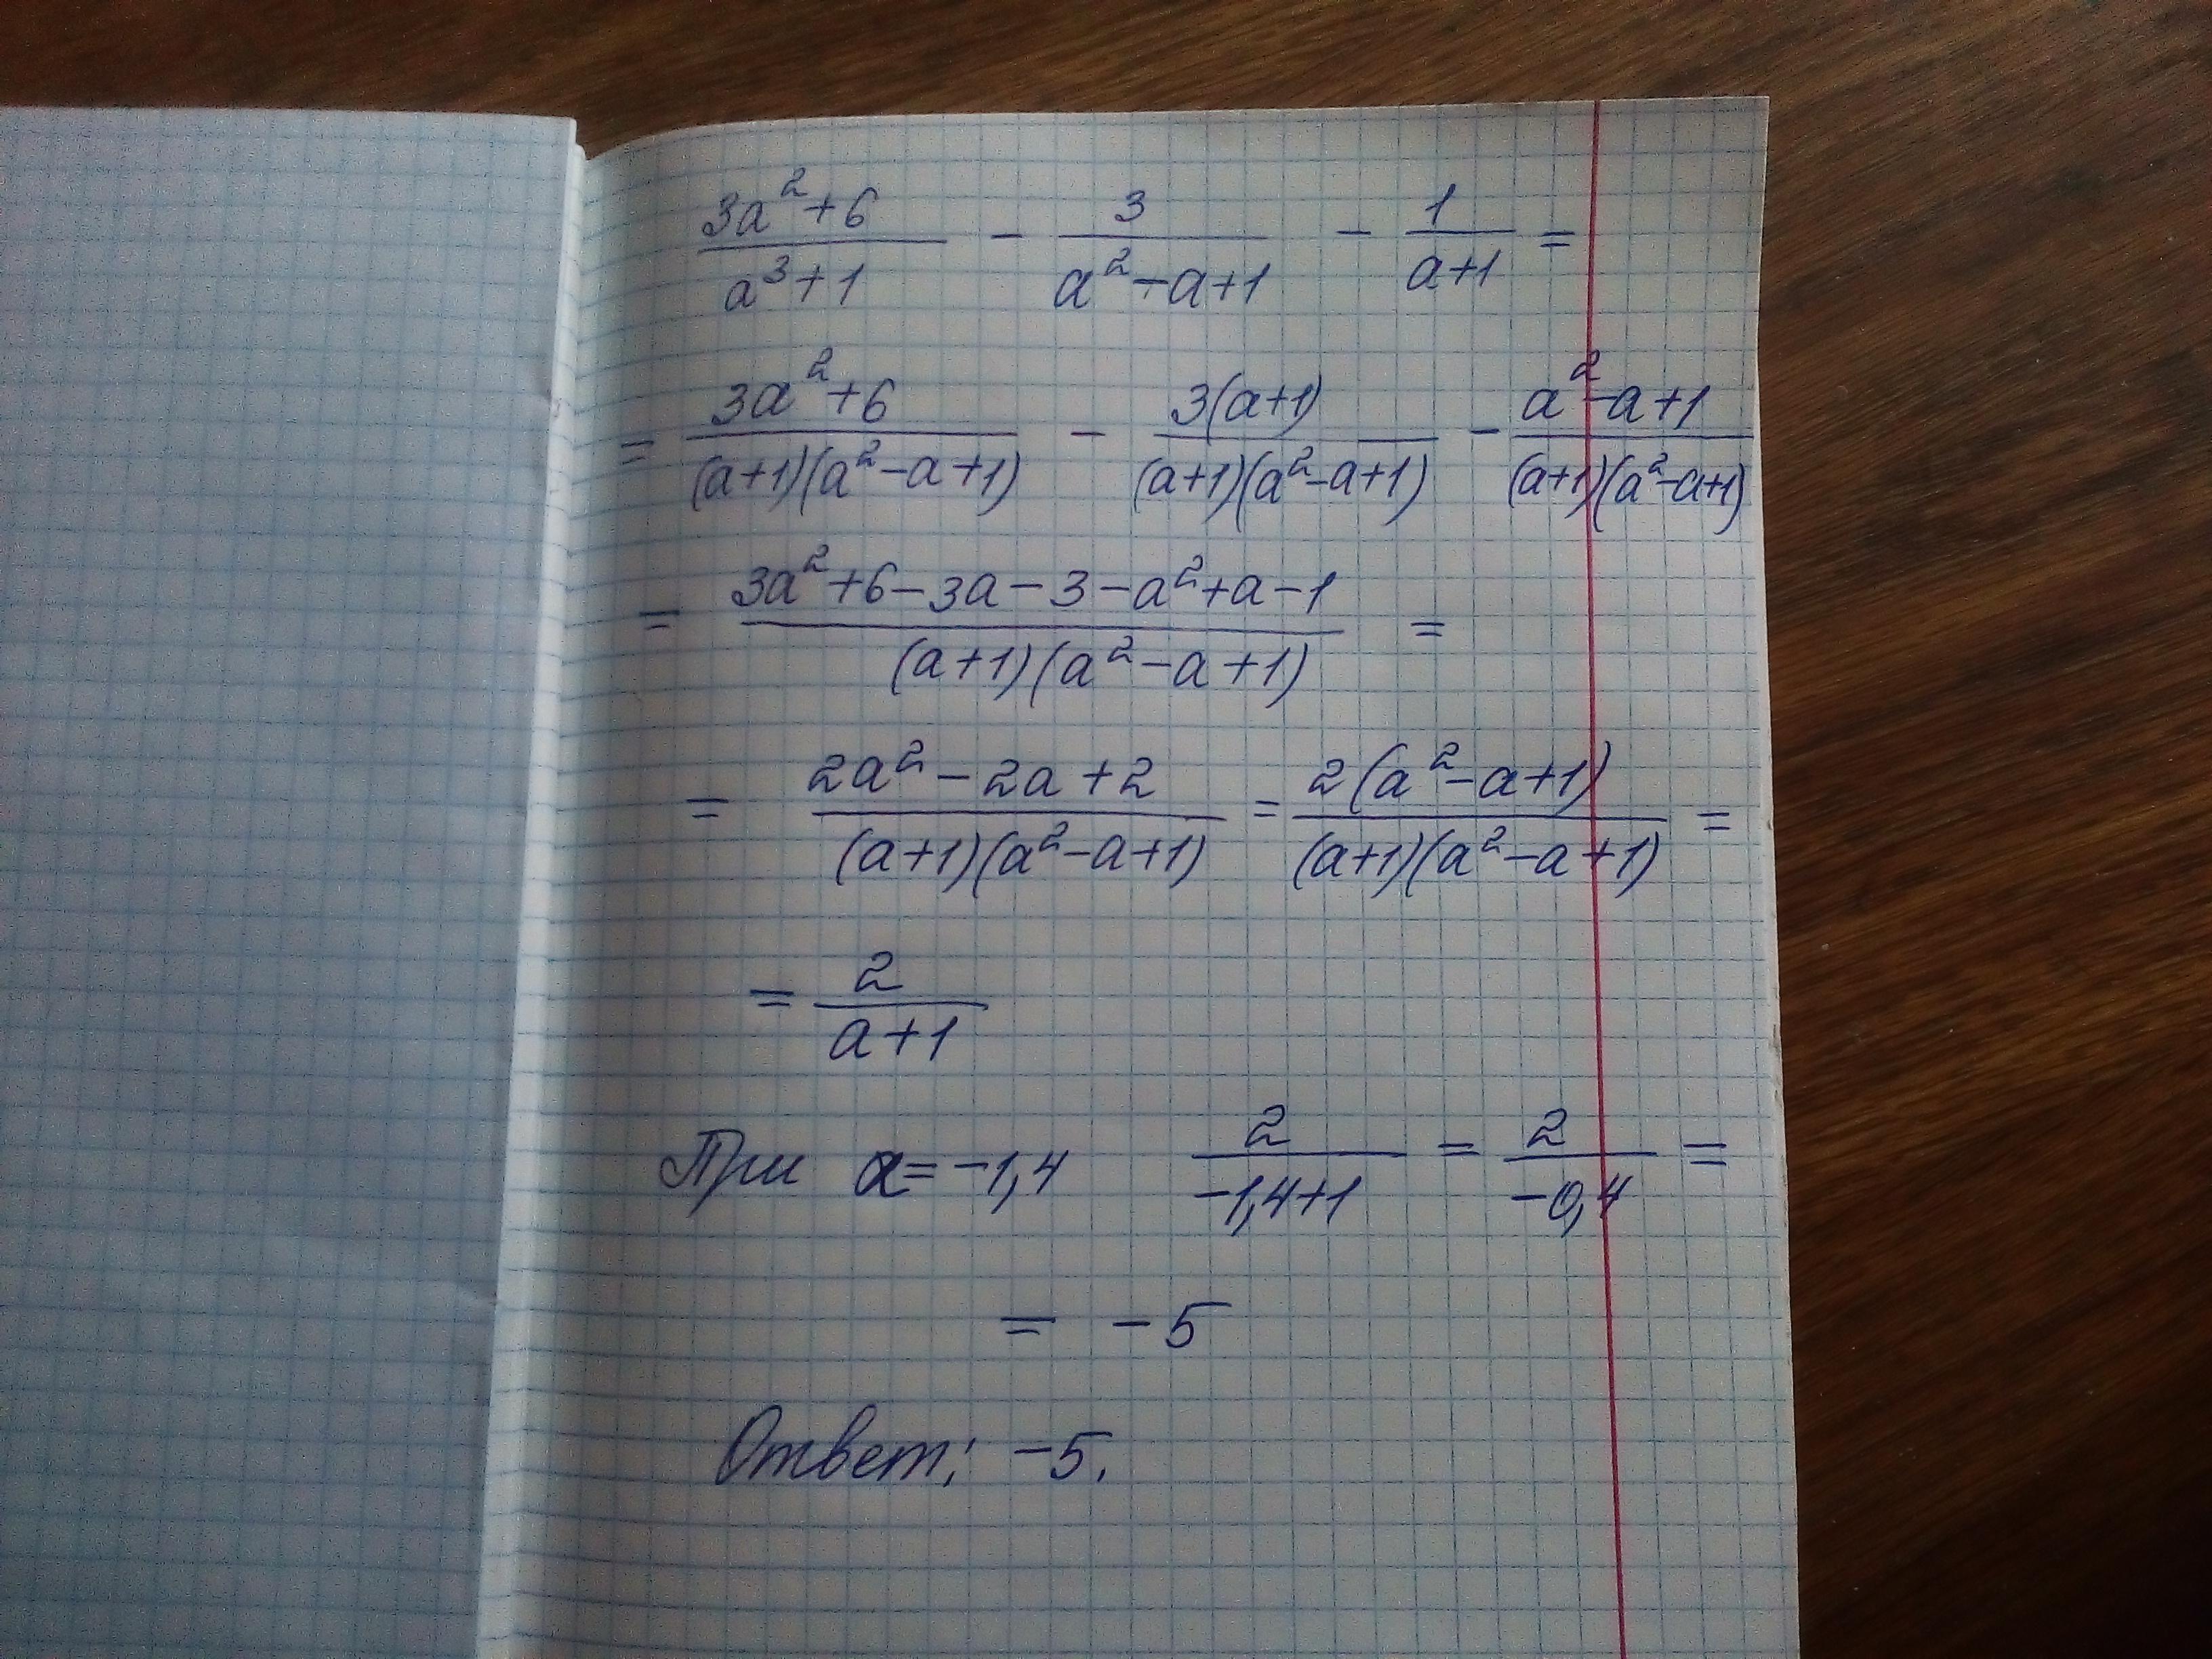 (3a²+6)/(a³+1) - 3/(a²-a+1) - 1/(a+1) =
= (3a²+6)/((a+1)(a²-a+1)) - 3(a+1)/((a+1)(a²-a+1)) - (a²-a+1)/((a+1)(a²-a+1))
= (3a²+6-3a-3-a²+a-1)/((a+1)(a²-a+1)) =
= (2a²-2a+2)/((a+1)(a²-a+1)) = 2(a²-a+1)/((a+1)(a²-a+1)) =
= 2/(a+1)
При a=-1,4 2/(-1,4+1) = 2/(-0,4) =
= -5
Ответ: -5.